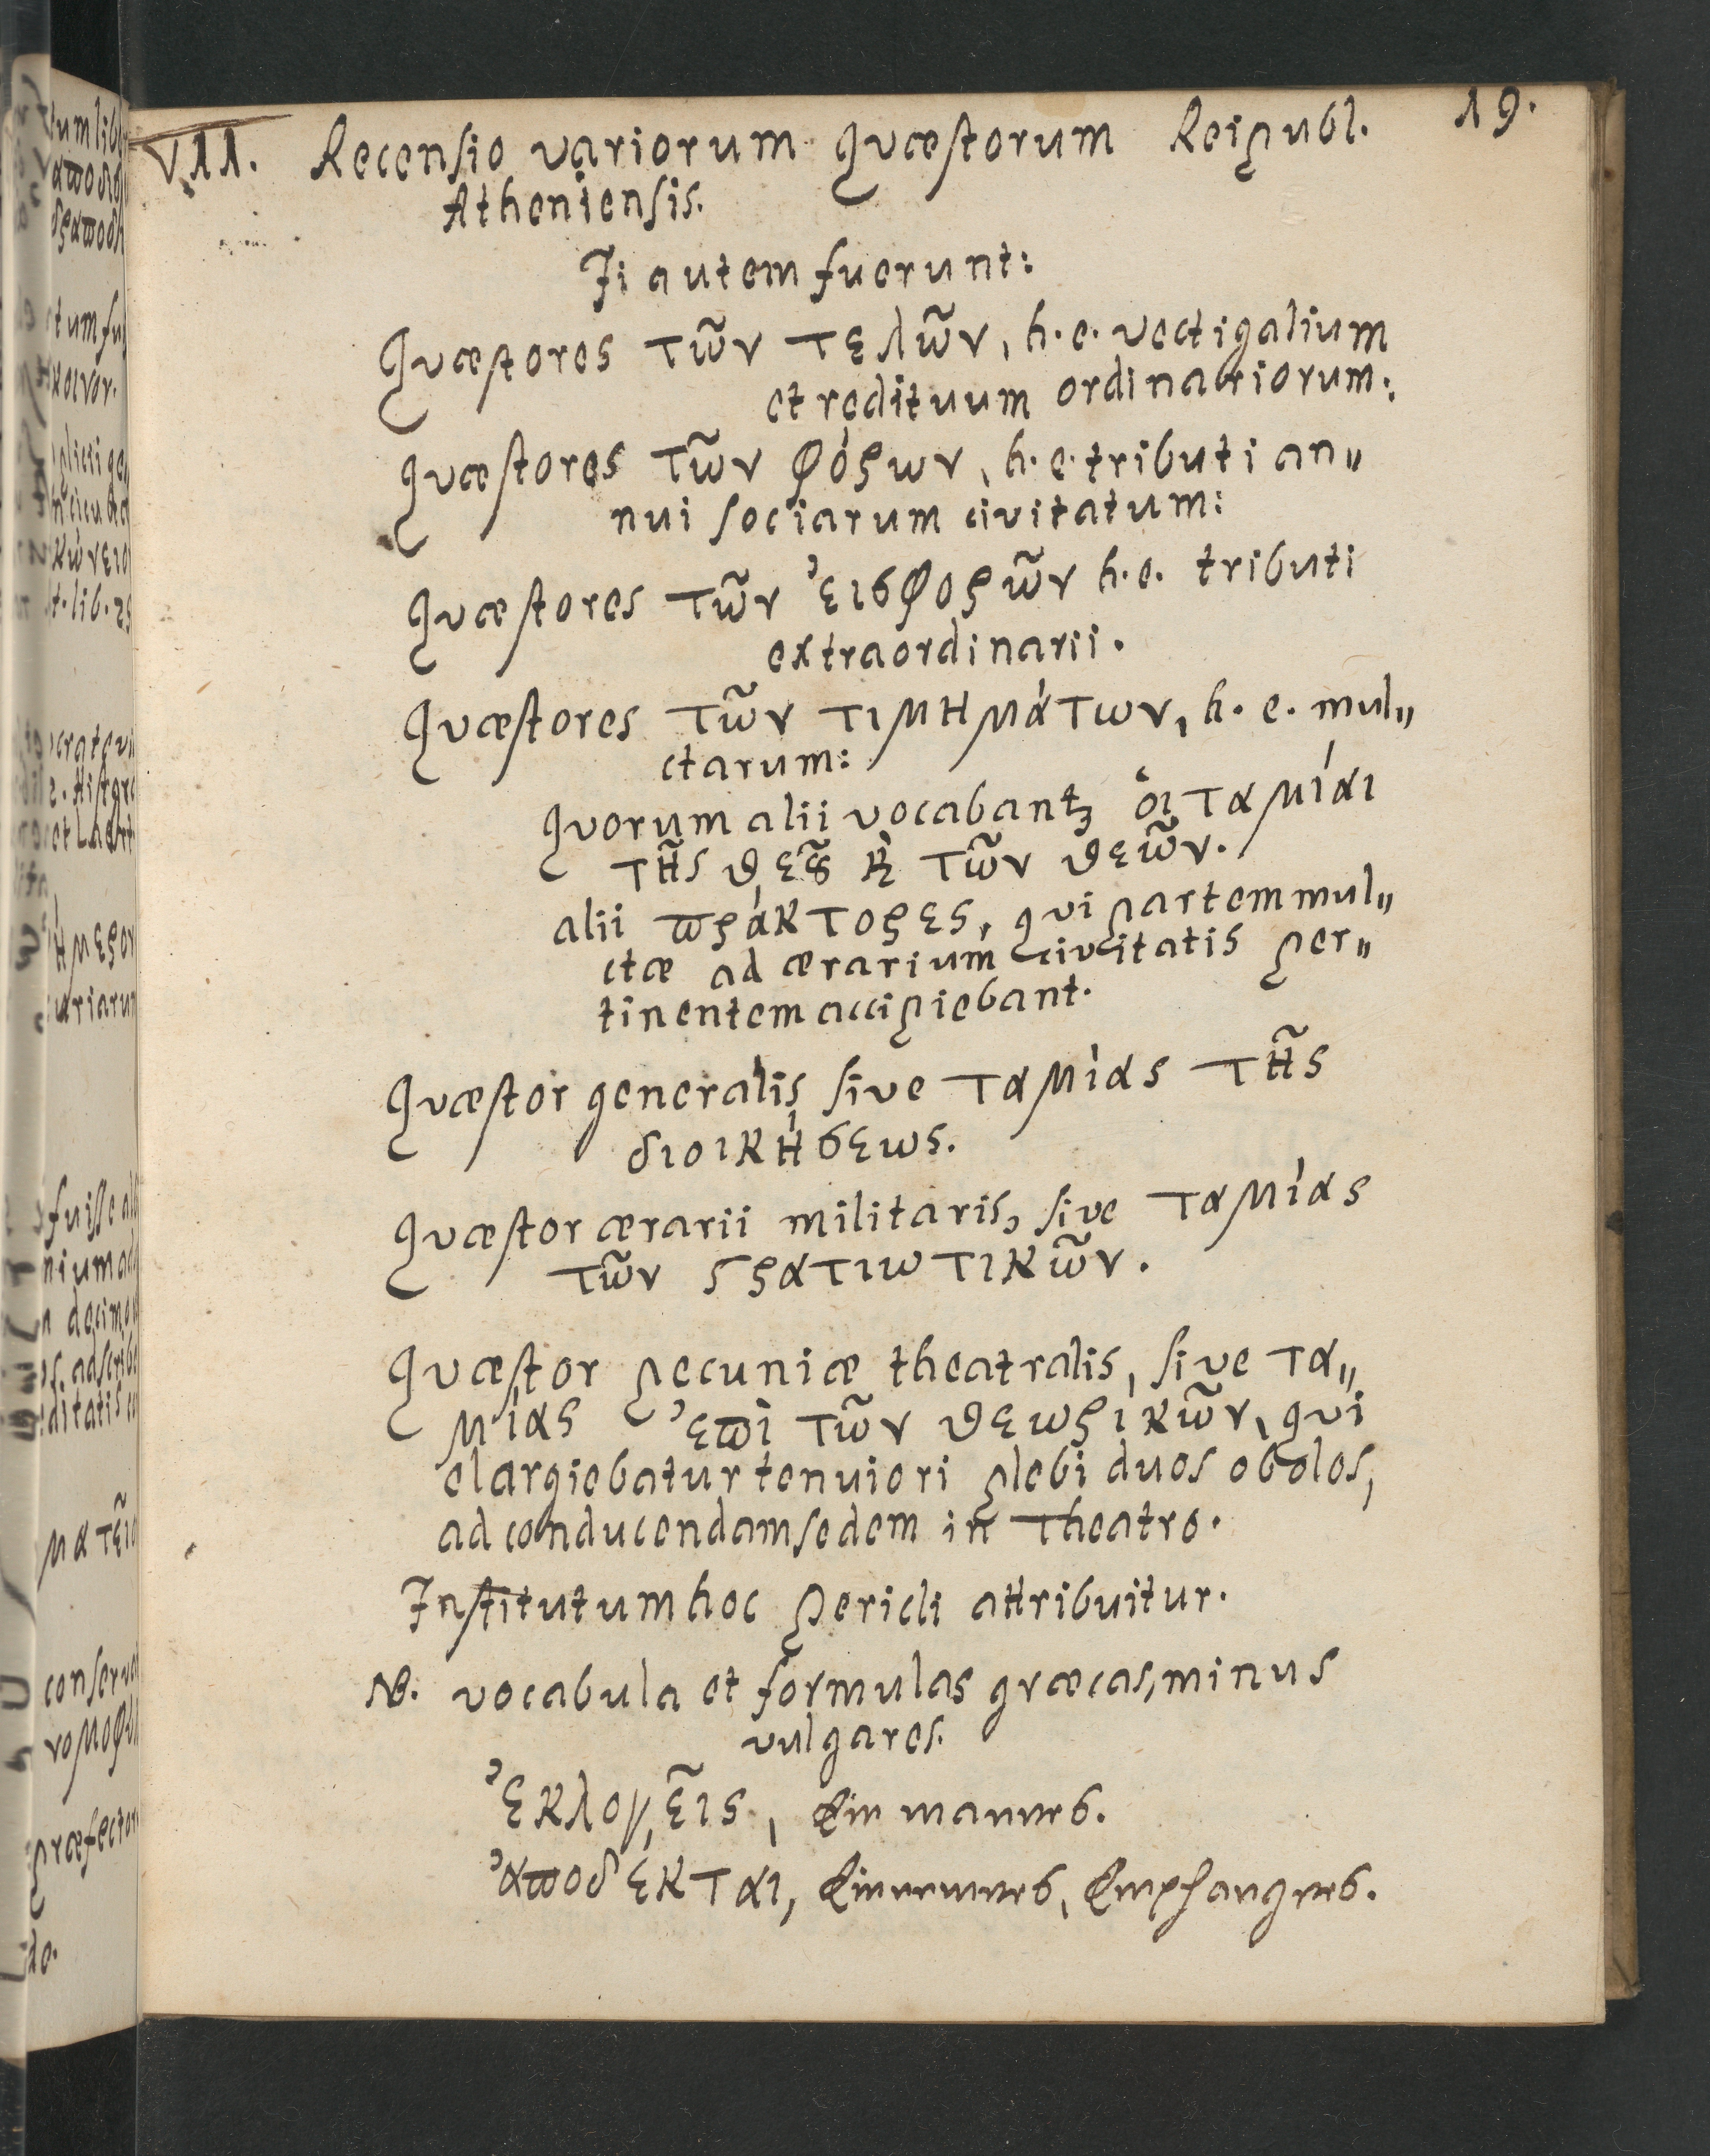 19.
VII. Recensio variorum Qvæstorum Reipubl.
Atheniensis.
Ii autem fuerunt:
Qvæstores τῶν τελῶν, h. e. vectigalium
et redituum ordinariorum:
Qvæstores τῶν φόρων, h. e. tributi an„
nui sociarum civitatum:
Qvæstores τῶν ἐισφορῶν h. e. tributi
extraordinarii.
Qvæstores τῶν τιμημάτων, h. e. mul„
ctarum:
Qvorum alii vocabantꝫ ὁι ταμίαι
τῆς θεȣ͂ ϗ̀ τῶν θεῶν.
alii πράκτορες, qvi partem mul„
ctæ ad ærarium civitatis per„
tinentem accipiebant.
Qvæstor generalis, sive ταμίας τῆς
διοικήσεως.
Qvæstor ærarii militaris, sive ταμίας
τῶν ϛρατιωτικῶν.
Qvæstor pecuniæ theatralis, sive τα„
μίας ἐπὶ τῶν θεωρικῶν, qvi
elargiebatur tenuiori plebi duos obolos,
ad conducendam sedem in Theatro.
Institutum hoc Pericli attribuitur.
NB. vocabula et formulas græcas, minus
vulgares.
Ἐκλογεῖς, Einmanner.
Ἀποδέκται, Einnemer, Empfanger.